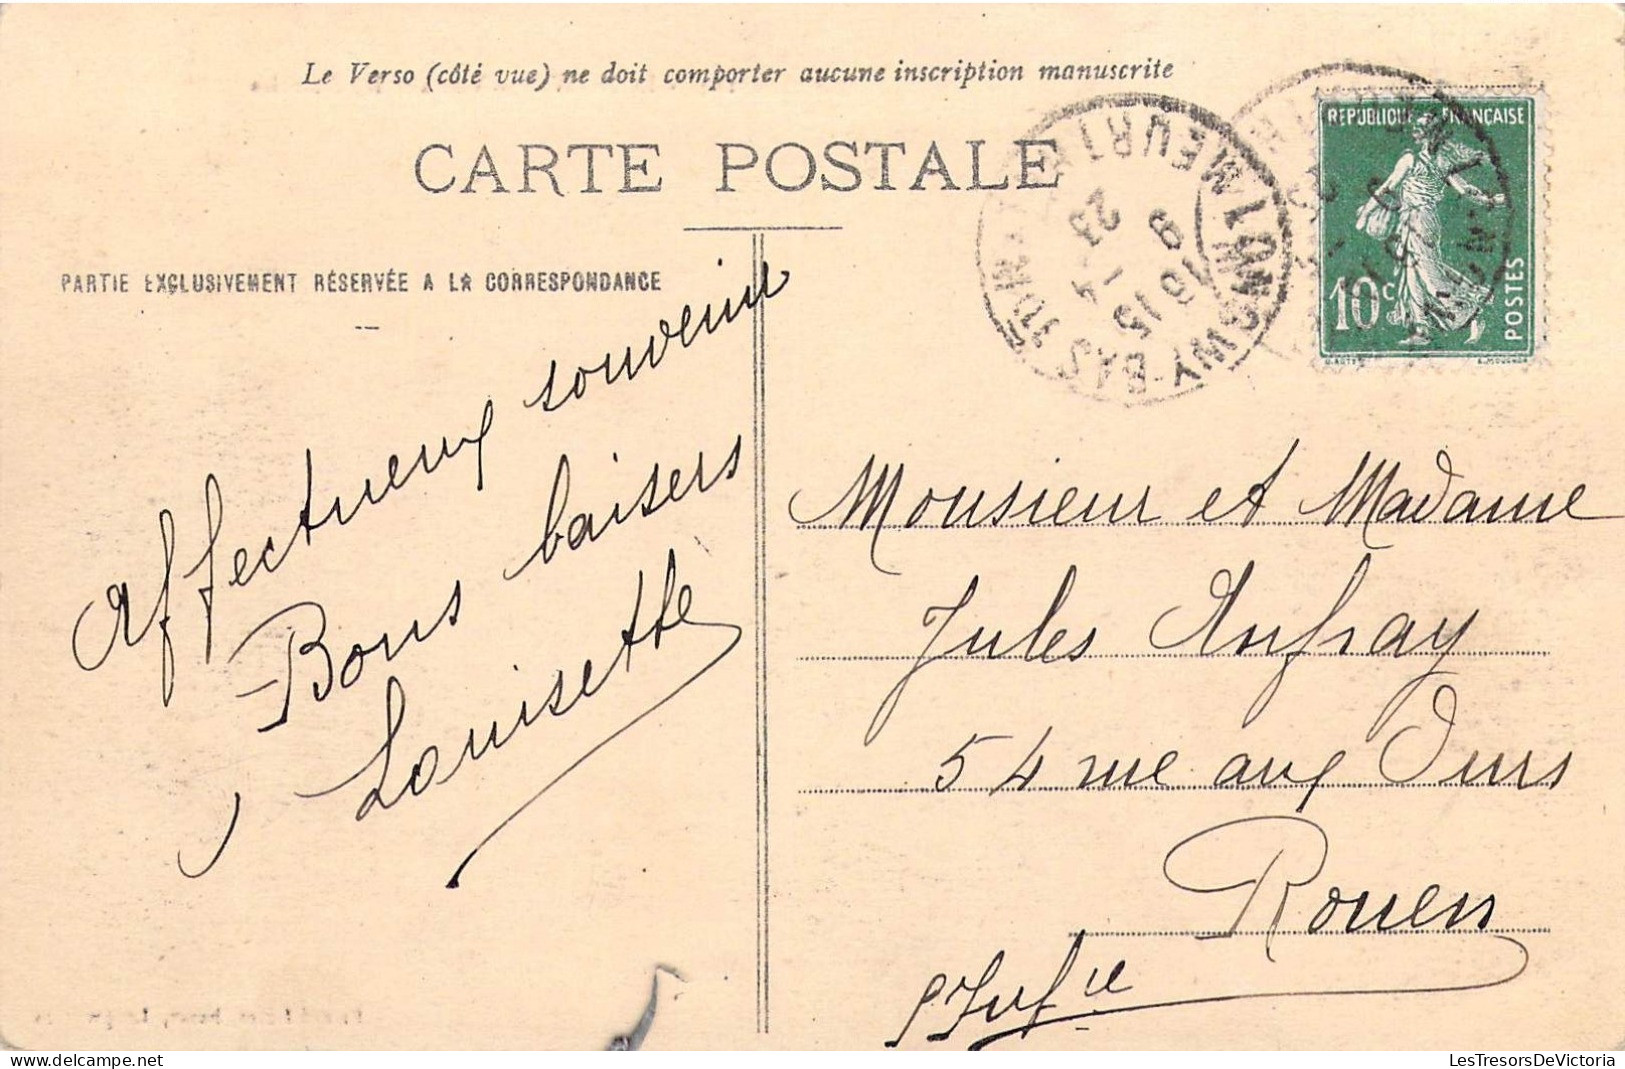 Le Verso (côté vue) ne doit comporter aucune inscription manuscrite
CARTE POSTALE
PARTIE EXCLUSIVEMENT RÉSERVÉE A LA CORRESPONDANCE
REPUBLIQUE FRANÇAISE
10c
POSTES
LONGWY-BAS
MEURTHE
16 15
9 - 4
23
Affectueux souvenir
Bons baisers
Louisette
Monsieur et Madame
Jules Aufray
54 rue aux Ours
Rouen
S Infre
LesTresorsDeVictoria